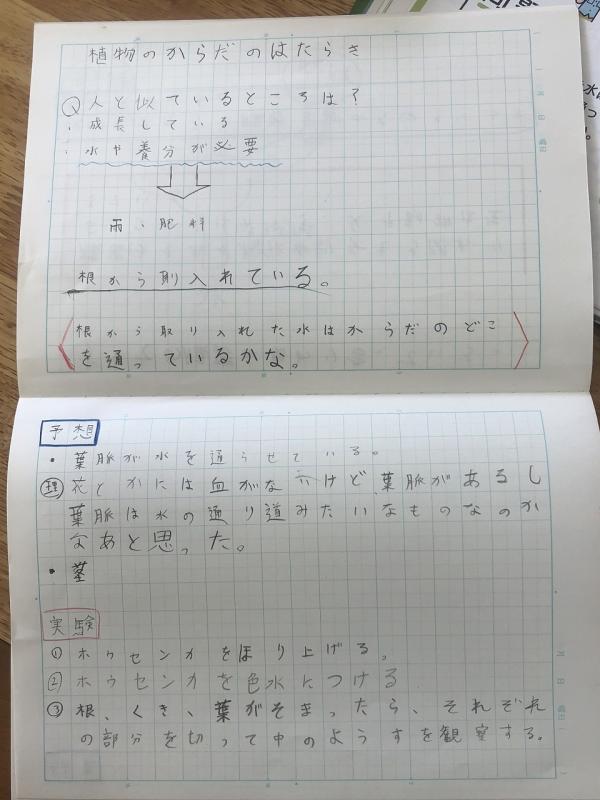 植物のからだのはたらき
Q 人と似ているところは?
・成長している
・水や養分が必要
雨・肥料
根から取り入れている。
根から取り入れた水はからだのどこ
を通っているかな。
予想
・葉脈が水を通らせている。
理 花とかには血がないけど、葉脈があるし
葉脈は水の通り道みたいなものなのか
なあと思った。
・茎
実験
① ホウセンカをほり上げる。
② ホウセンカを色水につける
③ 根、くき、葉がそまったら、それぞれ
の部分を切って中のようすを観察する。